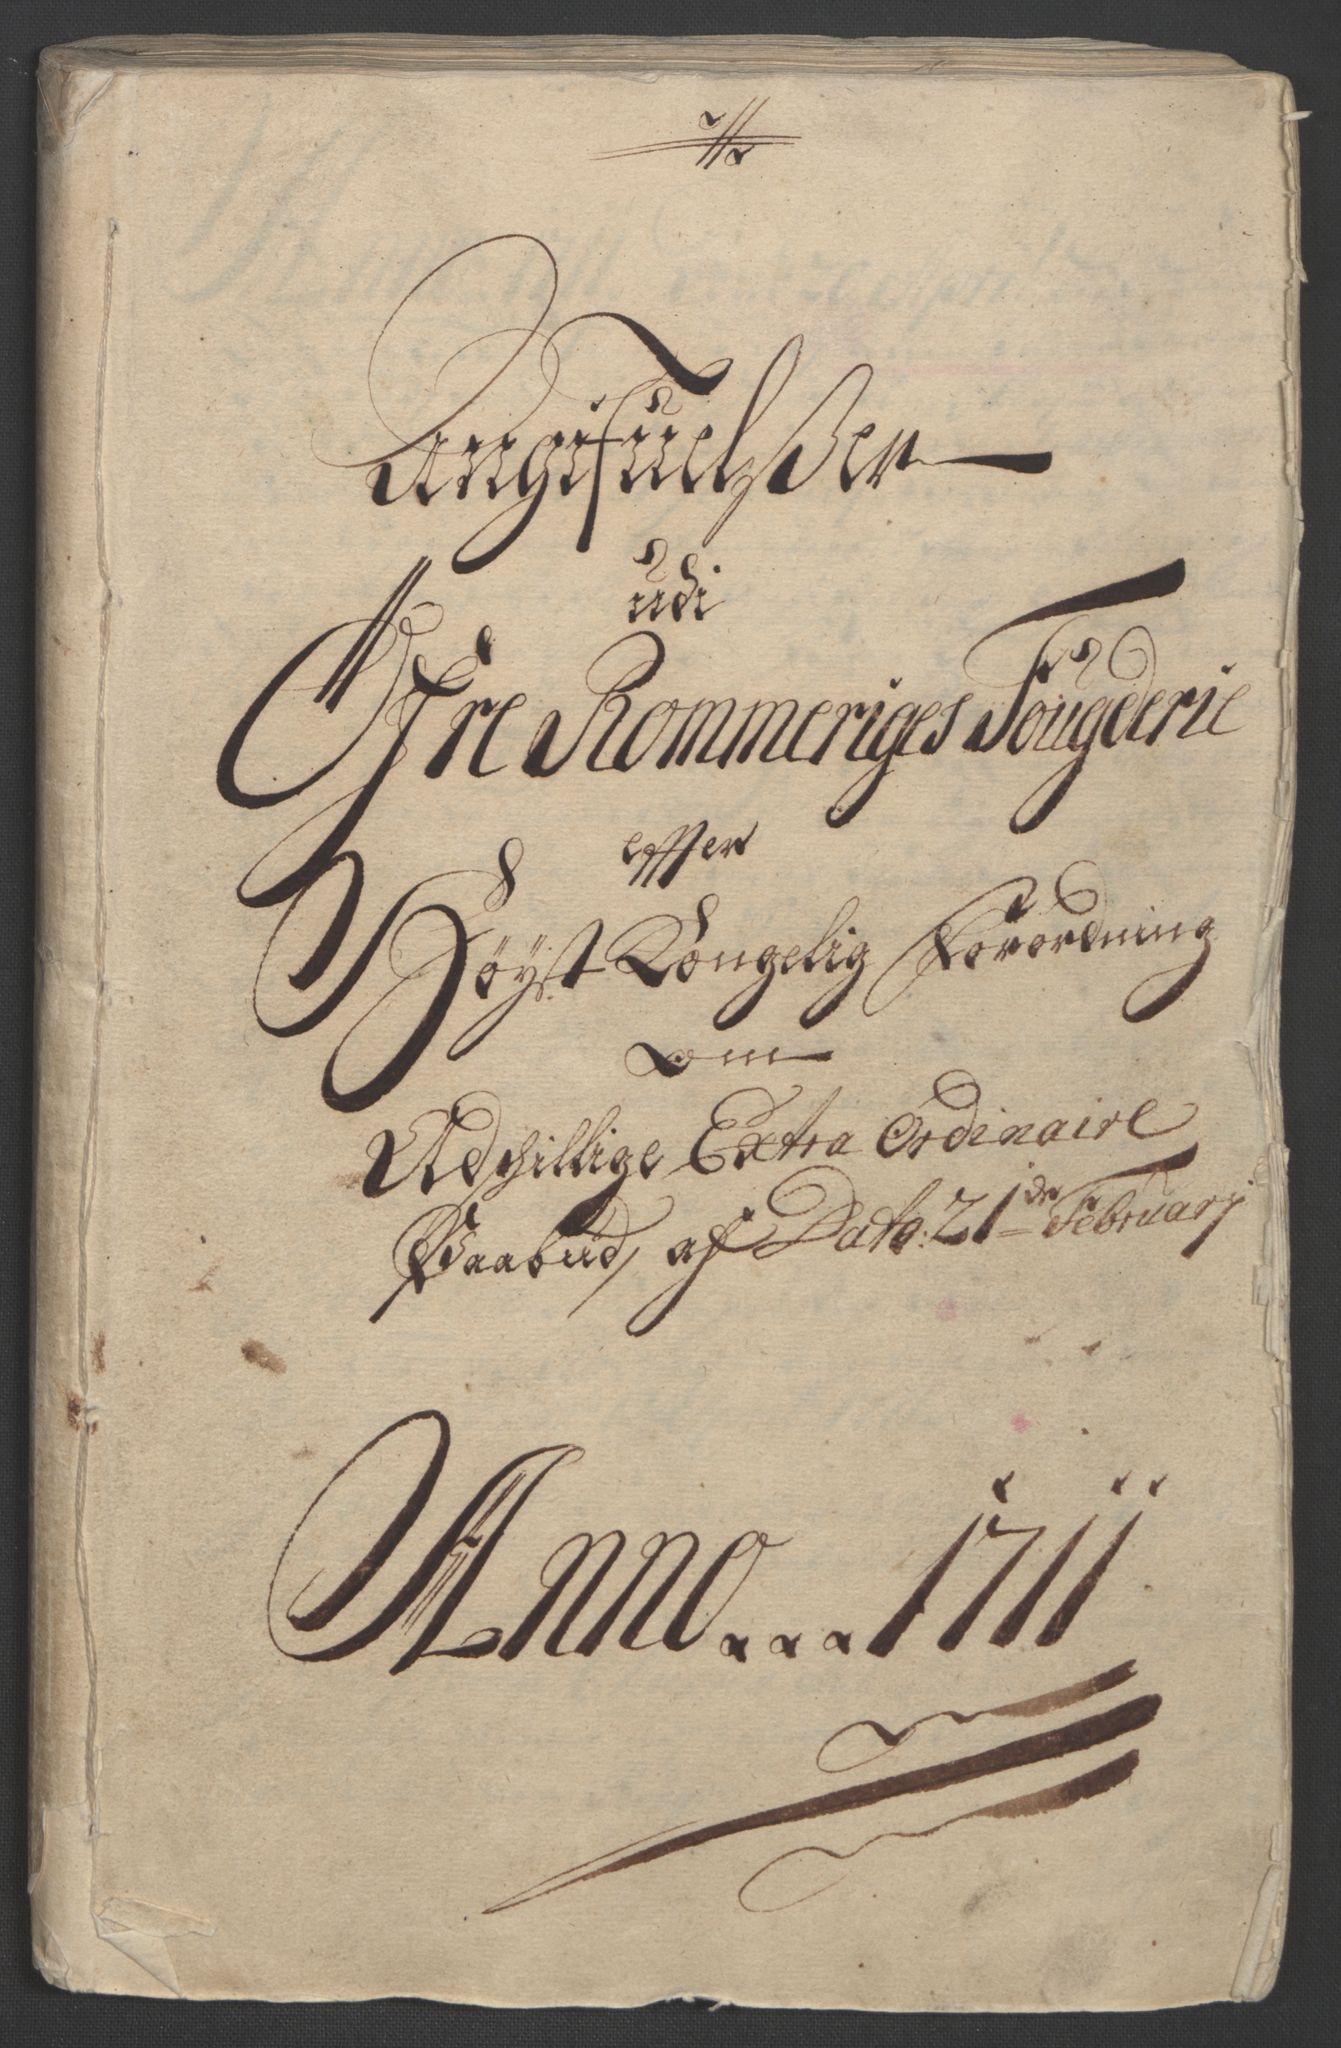 Angifuelßer
udi
Øfre Rommeriges Fougderie
effter
Höÿst Kongelig Forordning
om
Adschillige Extra Ordinaire
Paabud, af Dato: 21de February
Anno...1711